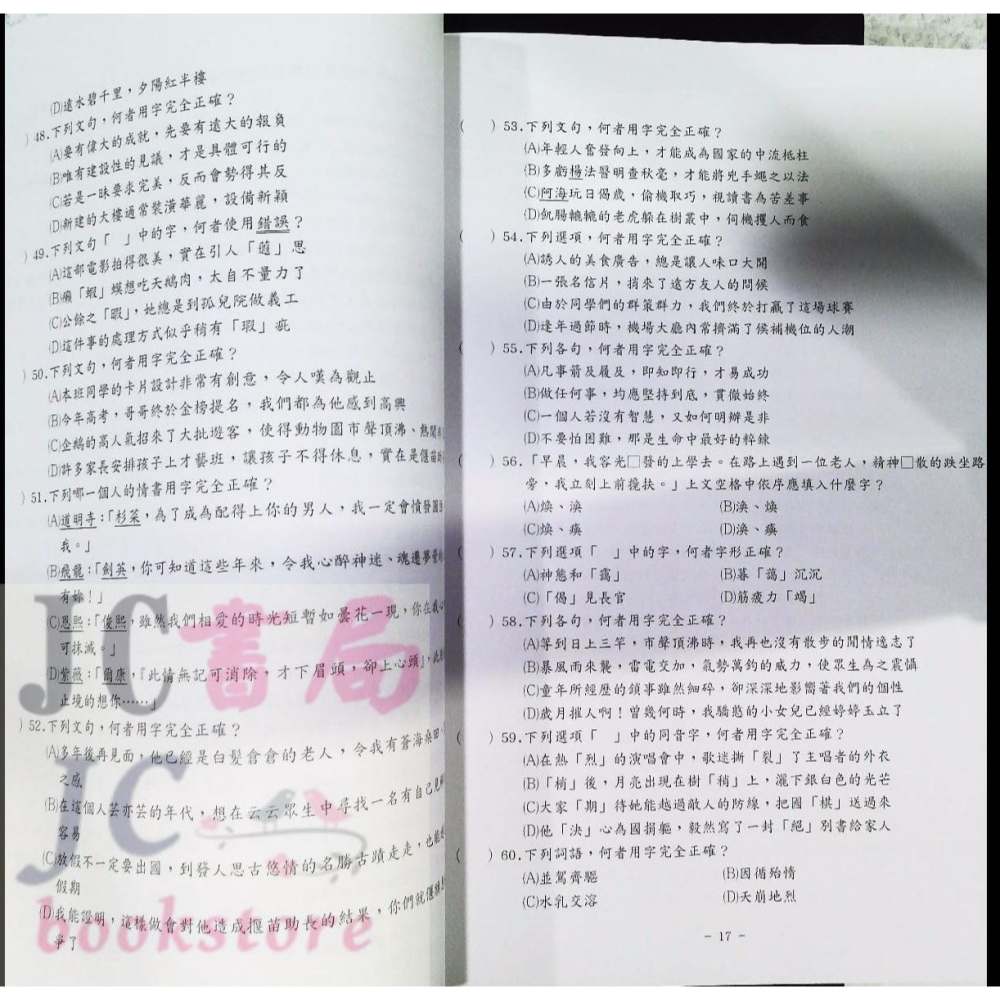 (D)遠水碧千里，夕陽紅半樓
)48.下列文句，何者用字完全正確？
(A)要有偉大的成就，先要有遠大的報負
(B)唯有建設性的見議，才是具體可行的
(C)若是一昧要求完美，反而會勢得其反
(D)新建的大樓通常裝潢華麗，設備新穎
)49.下列文句「　」中的字，何者使用錯誤？
(A)這部電影拍得很美，實在引人「遐」思
(B)癩「蝦」蟆想吃天鵝肉，太自不量力了
(C)公餘之「暇」，她總是到孤兒院做義工
(D)這件事的處理方式似乎稍有「瑕」疵
)50.下列文句，何者用字完全正確？
(A)本班同學的卡片設計非常有創意，令人嘆為觀止
(B)今年高考，哥哥終於金榜提名，我們都為他感到高興
(C)企鵝的高人氣招來了大批遊客，使得動物園市聲頂沸、熱鬧
(D)許多家長安排孩子上才藝班，讓孩子不得休息，實在是偃苗
)51.下列哪一個人的情書用字完全正確？
(A)道明寺：「杉菜，為了成為配得上你的男人，我一定會憤發圖
我。」
(B)飛龍：「劍英，你可知道這些年來，令我心醉神迷、魂遷夢
有妳！」
(C)恩熙：「俊熙，雖然我們相愛的時光短暫如曇花一現，你在我心
可抹滅。」
(D)紫薇：「爾康，『此情無記可消除，才下眉頭，卻上心頭』，此
止境的想你……」
)52.下列文句，何者用字完全正確？
(A)多年後再見面，他已經是白髮倉倉的老人，令我有蒼海桑田
之感
(B)在這個人芸亦芸的年代，想在云云眾生中尋找一名有自己見
容易
(C)放假不一定要出國，到發人思古悠情的名勝古蹟走走，也能
假期
(D)我能證明，這樣做會對他造成揠苗助長的結果，你們就
爭了
( )53.下列文句，何者用字完全正確？
(A)年輕人奮發向上，才能成為國家的中流柢柱
(B)多虧楊法醫明查秋毫，才能將兇手繩之以法
(C)阿海玩日偈歲，偷機取巧，視讀書為苦差事
(D)飢腸轆轆的老虎躲在樹叢中，伺機攫人而食
( )54.下列選項，何者用字完全正確？
(A)誘人的美食廣告，總是讓人味口大開
(B)一張名信片，捎來了遠方友人的問候
(C)由於同學們的群策群力，我們終於打贏了這場球賽
(D)逢年過節時，機場大廳內常擠滿了候補機位的人潮
( )55.下列各句，何者用字完全正確？
(A)凡事箭及履及，即知即行，才易成功
(B)做任何事，均應堅持到底，貫徹始終
(C)一個人若沒有智慧，又如何明辦是非
(D)不要怕困難，那是生命中最好的粹鍊
( )56.「早晨，我容光□發的上學去。在路上遇到一位老人，精神□散的跌坐路
旁，我立刻上前攙扶。」上文空格中依序應填入什麼字？
(A)煥、渙	(B)渙、煥
(C)煥、瘓	(D)渙、瘓
( )57.下列選項「　」中的字，何者字形正確？
(A)神態和「靄」	(B)暮「藹」沉沉
(C)「偈」見長官	(D)筋疲力「竭」
( )58.下列各句，何者用字完全正確？
(A)等到日上三竿，市聲頂沸時，我再也沒有散步的閒情逸志了
(B)暴風雨來襲，雷電交加，氣勢萬鈞的威力，使眾生為之震懾
(C)童年所經歷的鎖事雖然細碎，卻深深地影嚮著我們的個性
(D)歲月摧人啊！曾幾何時，我驕憨的小女兒已經婷婷玉立了
( )59.下列選項「　」中的同音字，何者用字完全正確？
(A)在熱「烈」的演唱會中，歌迷撕「裂」了主唱者的外衣
(B)「梢」後，月亮出現在樹「稍」上，灑下銀白色的光芒
(C)大家「期」待她能越過敵人的防線，把國「棋」送過來
(D)他「決」心為國捐軀，毅然寫了一封「絕」別書給家人
( )60.下列詞語，何者用字完全正確？
(A)並駕齊驅	(B)因循殆惰
(C)水乳交溶	(D)天崩地烈
- 17 -
JC書局
JC
bookstore